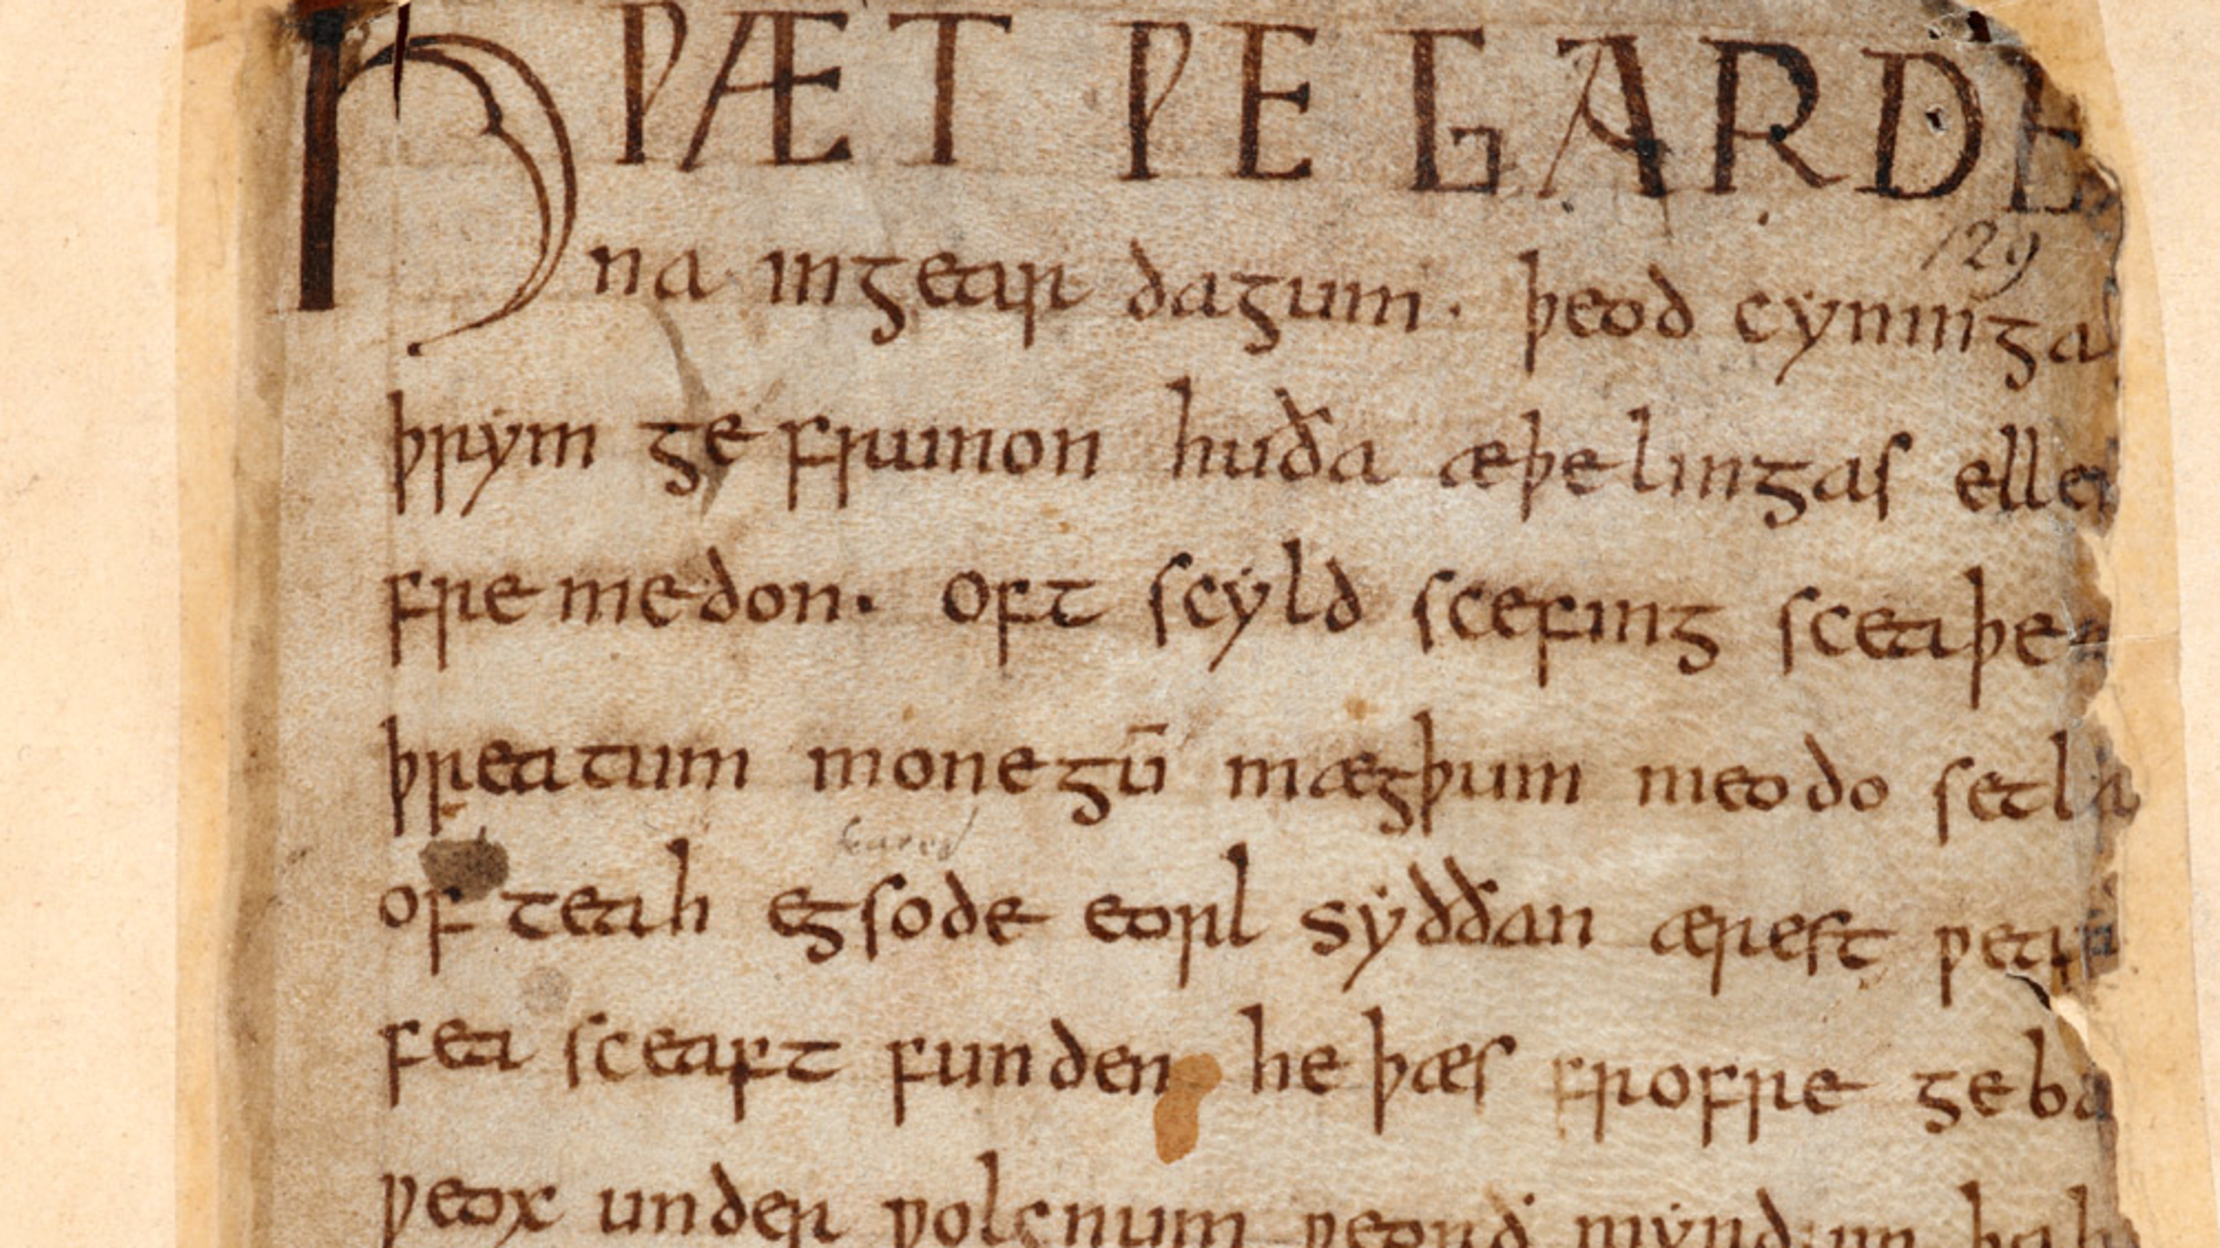 HǷÆT ǷE GARDE
129
na ingear dagum. þeod cyninga
þrym ge frunon huða æþelingas elle
fremedon. oft scyld scefing sceaþe
þreatum monegū mægþum meodo setla
feared
of teah egsode eorl syððan ærest ƿear
fea sceaft funden he þæs frofre geba
ƿeox under ƿolcnum ƿeorð myndum þah